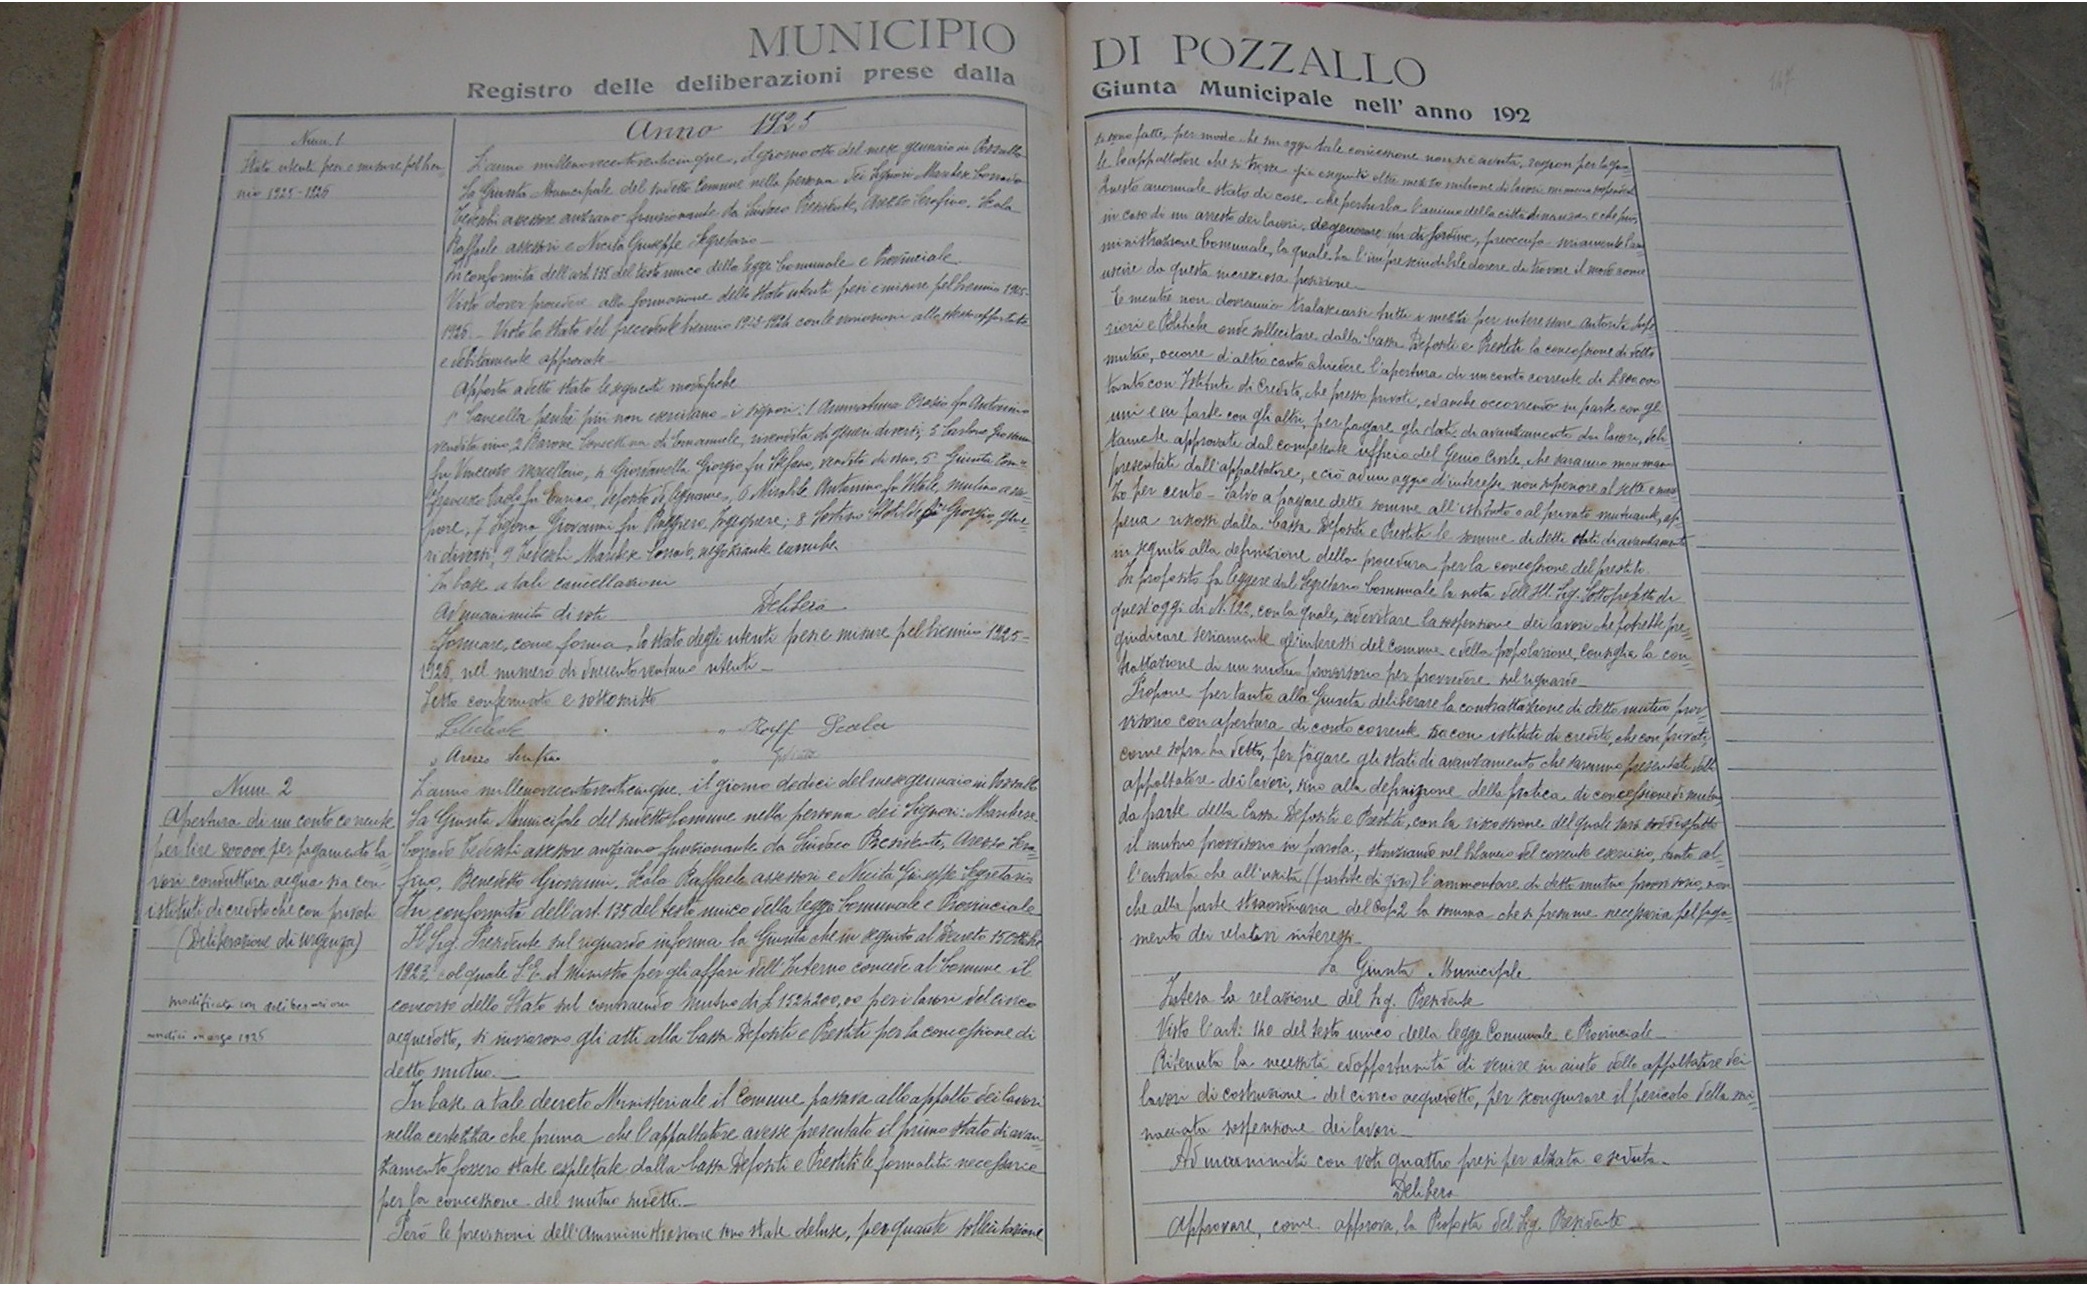 MUNICIPIO DI POZZALLO
Registro delle deliberazioni prese dalla Giunta Municipale nell' anno 192
Num. 1
Stato utenti pesi e misure pel bien-
nio 1925-1926
Anno 1925
L'anno millenovecentoventicinque, il giorno otto del mese gennaio in Pozzallo
La Giunta Municipale del sudetto Comune nella persona dei Signori Marchese Corrado
Tedeschi assessore anziano funzionante da Sindaco Presidente, Arezzo Serafino, Scala
Raffaele assessori e Nucita Giuseppe Segretario
In conformità dell'art. 135 del testo unico della legge Comunale e Provinciale
Visto dover procedere alla formazione dello stato utenti pesi e misure pel biennio 1925-
1926 - Visto lo stato del precedente biennio 1923-1924 con le variazioni allo stesso apportate
e debitamente approvate
Apporta a detto stato le seguenti modifiche
1° Cancella perché più non esercitano i signori: 1 Orazio fu Antonino
vendita vino, 2 Barone Concettina di Emanuele, rivendita di generi diversi, 3 Carbone
fu Vincenzo macellaio, 4 Giordanella Giorgio fu Stefano, vendita di vino, 5 Giunta
Paolo fu Enrico, deposito di, 6 Mirabile Antonino fu Natale, mulino a va-
pore, 7 Giovanni fu Ingegnere; 8 Clotilde fu Giorgio, gene-
ri diversi, 9 Tedeschi Marchese Corrado, negoziante carrube
In base a tali cancellazioni
Ad unanimità di voti
Delibera
Formare, come forma, lo stato degli utenti pesi e misure pel biennio 1925-
1926, nel numero di duecentoventuno utenti
Letto confermato e sottoscritto
Raff Scala
Arezzo Serafino
Num 2
Apertura di un conto corrente
per lire 800000 per pagamento la-
vori conduttura acqua sia con
istituti di credito che con privati
(Deliberazione di urgenza)
modificata con deliberazione
undici marzo 1925
L'anno millenovecentoventicinque, il giorno dodici del mese gennaio in Pozzallo
La Giunta Municipale del sudetto Comune nella persona dei Signori: Marchese
Corrado Tedeschi assessore anziano funzionante da Sindaco Presidente, Arezzo Sera-
fino, Benedetto Giovanni, Scala Raffaele assessori e Nucita Giuseppe Segretario
In conformità dell'art. 135 del testo unico della legge Comunale e Provinciale
Il Sig. Presidente sul riguardo informa la Giunta che in seguito al Decreto 15 Ottobre
1923 col quale S.E. il Ministro per gli affari dell'Interno concede al Comune il
concorso dello Stato sul contraendo mutuo di L 1524200,00 per i lavori del civico
acquedotto, si inviarono gli atti alla Cassa Depositi e Prestiti per la concessione di
detto mutuo.
In base a tale decreto Ministeriale il Comune passava allo appalto dei lavori
nella certezza che prima che l'appaltatore avesse presentato il primo stato di avan-
zamento fossero state espletate dalla Cassa Depositi e Prestiti le formalità necessarie
per la concessione del mutuo sudetto.
Però le previsioni dell'Amministrazione sono state deluse, per quante sollecitazione
si sono fatte, per modo che sin oggi tale concessione non si è avuta, ragion per la qua-
le l'appaltatore che si trova già eseguiti oltre mezzo milione di lavori minaccia sospenderli
Questo anormale stato di cose, che perturba l'animo della cittadinanza e che può,
in caso di un arresto dei lavori, degenerare in disordine, preoccupa seriamente l'am-
ministrazione Comunale, la quale ha l'imprescindibile dovere di trovare il modo come
uscire da questa incresciosa posizione
E mentre non dovranno tralasciarsi tutti i mezzi per interessare Autorità Supe-
riori e Politiche onde sollecitare dalla Cassa Depositi e Prestiti la concessione di detto
mutuo, occorre d'altro canto chiedere l'apertura di un conto corrente di L 800000
tanto con Istituti di Credito, che presso privati, ed anche occorrendo in parte con gli
uni e in parte con gli altri, per pagare gli stati di avanzamento dei lavori, debi-
tamente approvati dal competente ufficio del Genio Civile, che saranno man mano
presentati dall'appaltatore, e ciò ad un aggio d'interesse non superiore al sette e mez-
zo per cento - Salvo a pagare dette somme all'istituto o al privato mutuante, ap-
pena riscossi dalla Cassa Depositi e Prestiti le somme di detti stati di avanzamento
in seguito alla definizione della procedura per la concessione del prestito.
In proposito fa leggere dal Segretario Comunale la nota dell'Ill. Sig. Sottoprefetto di
quest'oggi di N. 122, con la quale, ad evitare la sospensione dei lavori che potrebbe pre-
giudicare seriamente gl'interessi del Comune e della popolazione, consiglia la con-
trattazione di un mutuo provvisorio per provvedere sul riguardo
Propone pertanto alla Giunta deliberare la contrattazione di detto mutuo prov-
visorio con apertura di conto corrente sia con istituti di credito, che con privati,
come sopra ha detto, per pagare gli stati di avanzamento che saranno presentati dallo
appaltatore dei lavori, sino alla definizione della pratica di concessione di mutuo
da parte della Cassa Depositi e Prestiti, con la riscossione del quale sarà soddisfatto
il mutuo provvisorio in parola, stanziando nel bilancio del corrente esercizio, tanto al-
l'entrata che all'uscita (partite di giro) l'ammontare di detto mutuo provvisorio, non
che alla parte straordinaria del Cap 2 la somma che si presume necessaria pel paga-
mento dei relativi interessi
La Giunta Municipale
Intesa la relazione del Sig. Presidente
Visto l'art. 140 del testo unico della legge Comunale e Provinciale
Ritenuta la necessità ed opportunità di venire in aiuto dello appaltatore dei
lavori di costruzione del civico acquedotto, per scongiurare il pericolo della mi-
nacciata sospensione dei lavori
Ad unanimità con voti quattro presi per alzata e seduta
Delibera
Approvare, come approva, la Proposta del Sig. Presidente